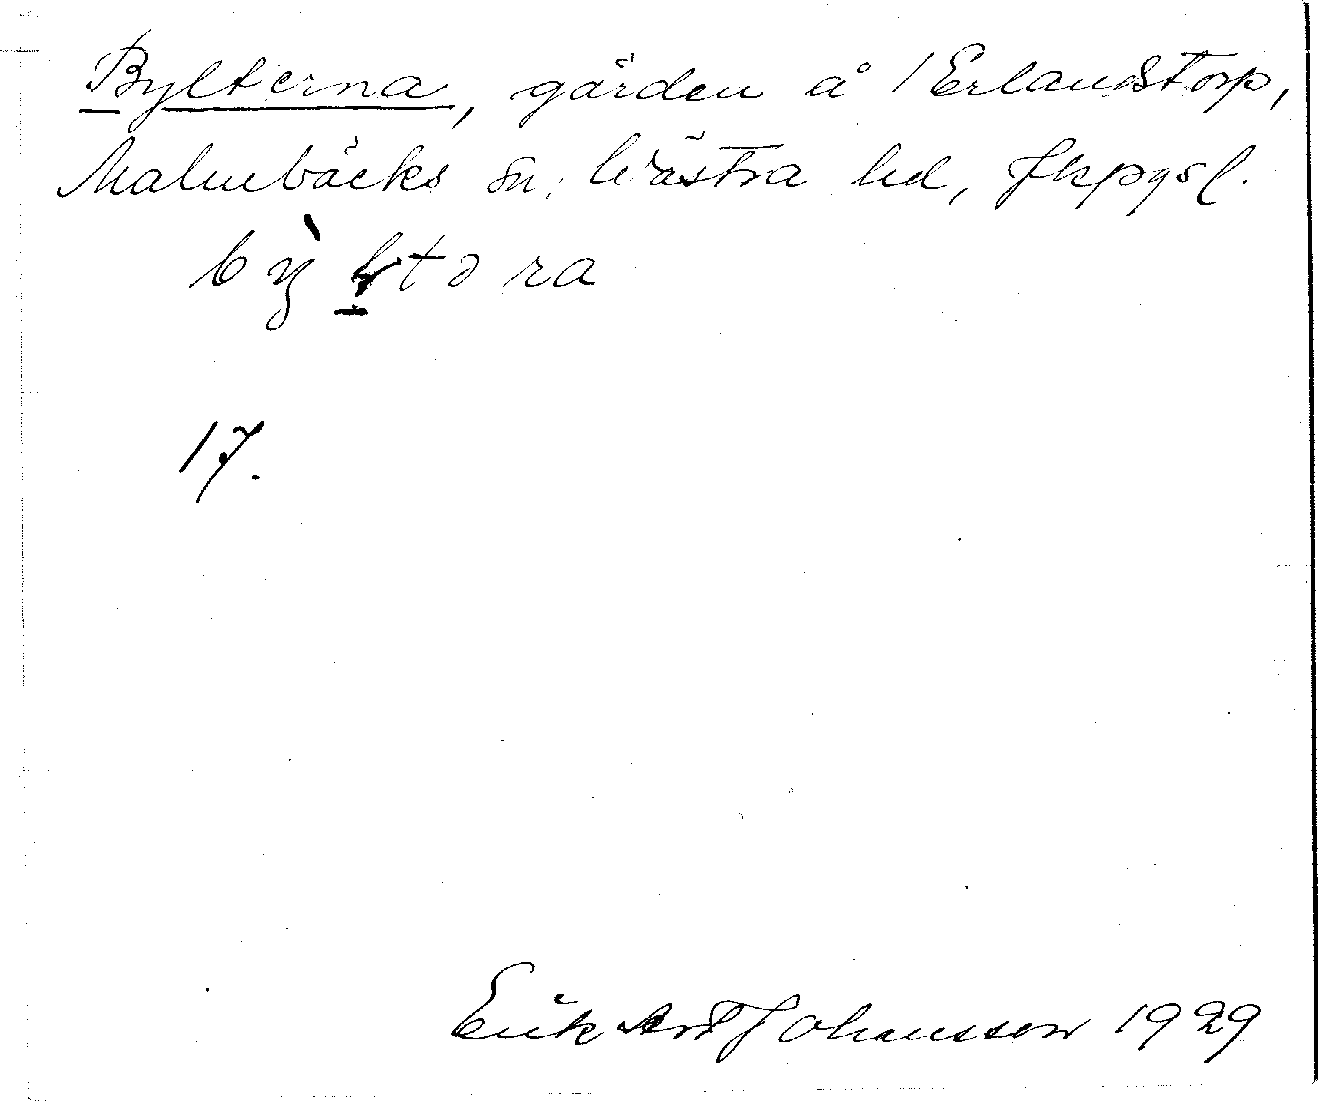 Bylterna, gärden å 1 Erlandstorp,
Malmbäcks sn, Västra hd, Jkpgs l.
17.
Erik Johansson 1929